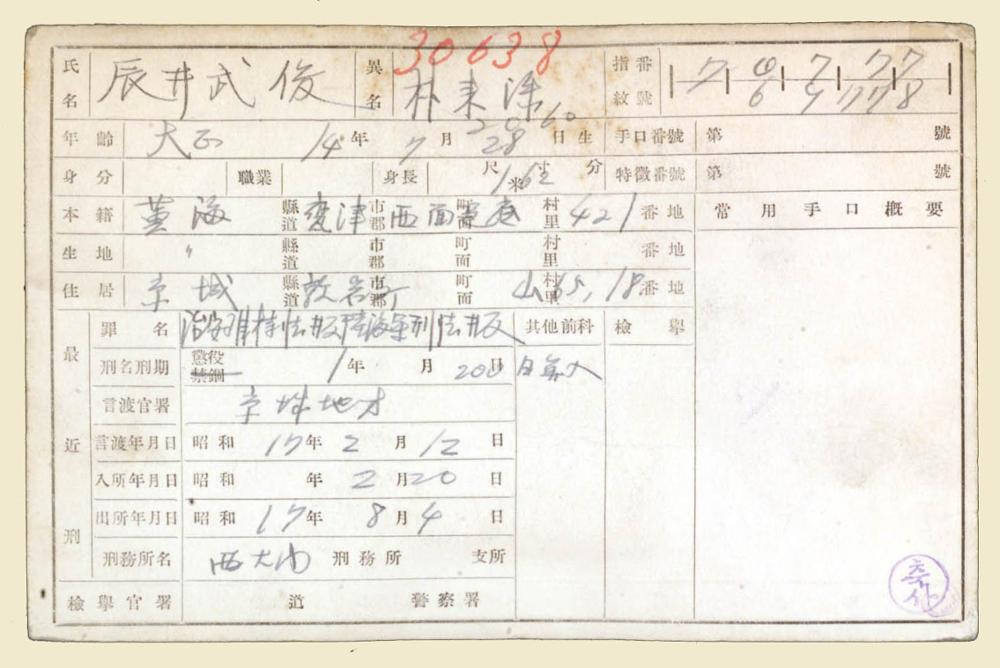 30638
氏名 辰井武俊 異名 朴来 指紋番號 7 7 77 7
6 9 77 8
年齡 大正 14年 7月 28日生 手口番號 第 號
身分 職業 身長 尺 寸 分 米 1 62 特徵番號 第 號
本籍 黃海 縣道 甕津 市郡 西面 町面 村里 421番地 常用手口槪要
生地 〃 縣道 市郡 町面 村里 番地
住居 京城 縣道 市郡 町面 山 村里 65, 18番地
最近刑 罪名 治安維持法井反陸海軍刑法井反 其他前科 檢擧
刑名刑期 懲役 禁錮 1年 月 200日 日算入
言渡官署 京城地方
言渡年月日 昭和 17年 2月 12日
入所年月日 昭和 年 2月20日
出所年月日 昭和 17年 8月 4日
刑務所名 西大門 刑務所 支所
檢擧官署 道 警察署